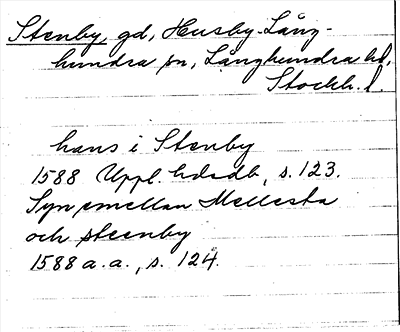 Stenby, gd, Husby-Lång-
hundra sn, Långhundra hd,
Stockh. l.
hans i Stenby
1588 Uppl. hdsdb, s. 123.
Syn emellan Mellesta
och steenby
1588 a. a., s. 124.